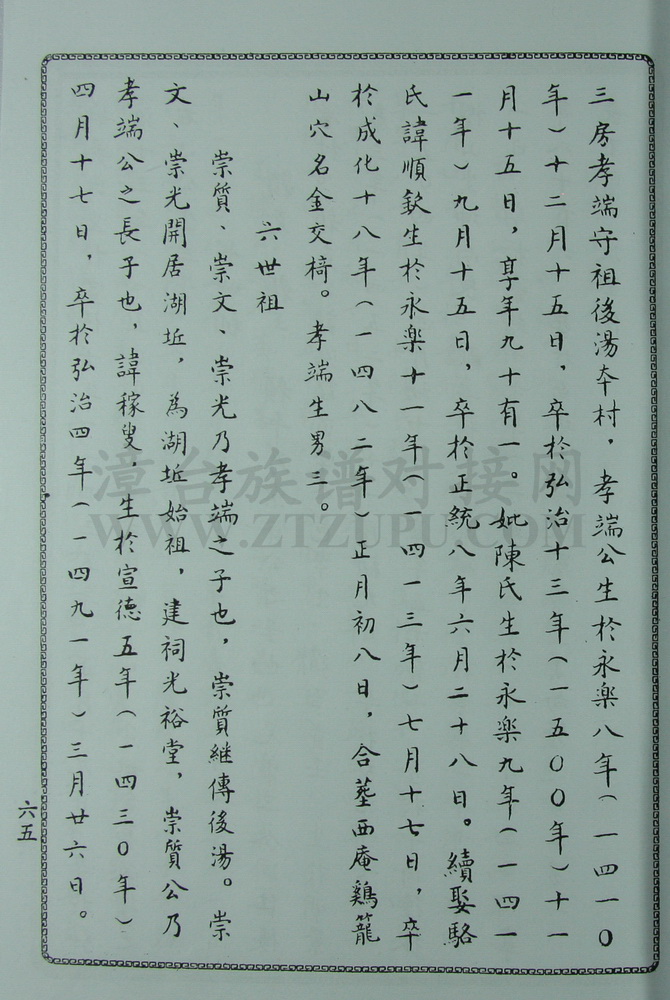 三房孝端守祖後湯本村，孝端公生於永楽八年(一四一〇
年)十二月十五日，卒於弘治十三年(一五〇〇年)十一
月十五日，享年九十有一。妣陳氏生於永楽九年(一四一
一年)九月十五日，卒於正統八年六月二十八日。續娶駱
氏諱順欽生於永楽十一年(一四一三年)七月十七日，卒
於成化十八年(一四八二年)正月初八日，合塟西庵鷄籠
山穴名金交椅。孝端生男三。
六世祖
崇質、崇文、崇光乃孝端之子也，崇質継傳後湯。崇
文、崇光開居湖坵，為湖坵始祖，建祠光裕堂，崇質公乃
孝端公之長子也，諱稼叟，生於宣德五年(一四三〇年)
四月十七日，卒於弘治四年(一四九一年)三月廿六日。
六五
漳台族谱对接网
WWW.ZTZUPU.COM